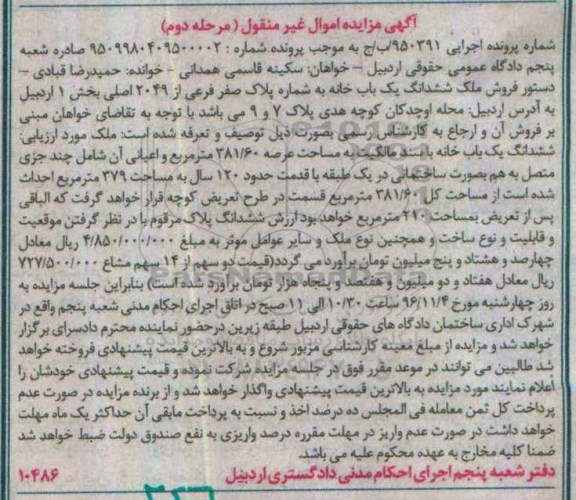 آگهی مزایده اموال غیر منقول (مرحله دوم)
شماره پرونده اجرایی ۹۵۰۳۹۱/ب/ج به موجب پرونده شماره : ۹۵۰۹۹۸۰۴۰۹۵۰۰۰۰۲ صادره شعبه
پنجم دادگاه عمومی حقوقی اردبیل – خواهان: سکینه قاسمی همدانی - خوانده: حمیدرضا قبادی -
دستور فروش ملک ششدانگ یک باب خانه به شماره پلاک صفر فرعی از ۲۰۴۹ اصلی بخش ۱ اردبیل
به آدرس اردبیل: محله اوچدکان کوچه هدی پلاک ۷ و ۹ می باشد با توجه به تقاضای خواهان مبنی
بر فروش آن و ارجاع به کارشناس رسمی بصورت ذیل توصیف و تعرفه شده است: ملک مورد ارزیابی:
ششدانگ یک باب خانه با سند مالکیت به مساحت عرصه ۳۸۱/۶۰ مترمربع و اعیانی آن شامل چند جزی
متصل به هم بصورت ساختمانی در یک طبقه با قدمت حدود ۱۲۰ سال به مساحت ۳۷۹ مترمربع احداث
شده است از مساحت کل ۳۸۱/۶۰ مترمربع قسمت در طرح تعریض کوچه قرار خواهد گرفت که الباقی
پس از تعریض بمساحت ۲۱۰ مترمربع خواهد بود ارزش ششدانگ پلاک مرقوم با در نظر گرفتن موقعیت
و قابلیت و نوع ساخت و همچنین نوع ملک و سایر عوامل موثر به مبلغ ۴/۸۵۰/۰۰۰/۰۰۰ ریال معادل
چهارصد و هشتاد و پنج میلیون تومان برآورد می گردد(قیمت دو سهم از ۱۴ سهم مشاع ۷۲۷/۵۰۰/۰۰۰
ریال معادل هفتاد و دو میلیون و هفتصد و پنجاه هزار تومان برآورد شده است) بنابراین جلسه مزایده به
روز چهارشنبه مورخ ۹۶/۱۱/۴ ساعت ۱۰/۳۰ الی ۱۱ صبح در اتاق اجرای احکام مدنی شعبه پنجم واقع در
شهرک اداری ساختمان دادگاه های حقوقی اردبیل طبقه زیرین درحضور نماینده محترم دادسرای برگزار
خواهد شد و مزایده از مبلغ معینه کارشناسی مزبور شروع و به بالاترین قیمت پیشنهادی فروخته خواهد
شد طالبین می توانند در موعد مقرر فوق در جلسه مزایده شرکت نموده و قیمت پیشنهادی خودشان را
اعلام نمایند مورد مزایده به بالاترین قیمت پیشنهادی واگذار خواهد شد و از برنده مزایده در صورت عدم
پرداخت کل ثمن معامله فی المجلس ده درصد اخذ و نسبت به پرداخت مابقی آن حداکثر یک ماه مهلت
خواهد داشت در صورت عدم واریز در مهلت مقرره درصد واریزی به نفع صندوق دولت ضبط خواهد شد
ضمنا کلیه مخارج به عهده محکوم علیه می باشد.
دفتر شعبه پنجم اجرای احکام مدنی دادگستری اردبیل ۱۰۴۸۶